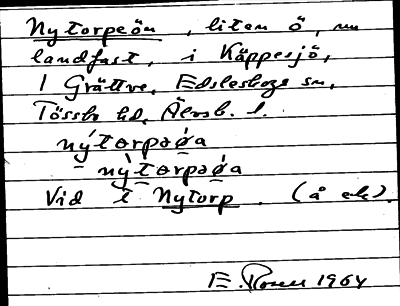 Nytorpeön, liten ö, nu
landfast, i Käppesjö,
l Grättve, Edsleskogs sn,
Tössbo hd, Älvsb. l.
nýtorpaǿa
nỳtorpaǿa
Vid t Nytorp. (å ek).
E. Rosell 1964